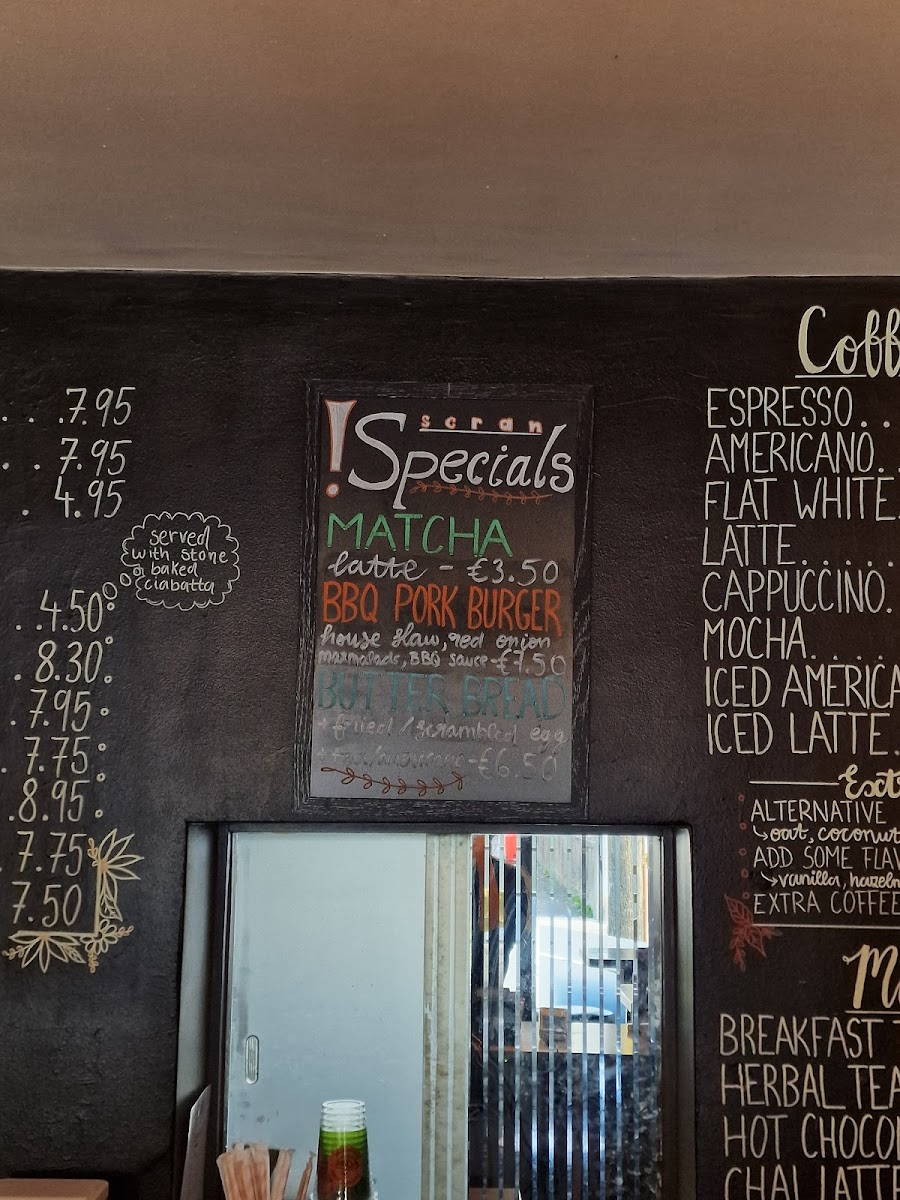 . . .7.95
. . 7.95
. 4.95
served
with stone
baked
ciabatta
. .4.50
. 8.30
. 7.95
. 7.75
.8.95
. 7.75
7.50
! scran
Specials
MATCHA
latte - €3.50
BBQ PORK BURGER
house slaw, red onion
marmalade, BBQ sauce - €7.50
BUTTER BREAD
+ fried / scrambled egg
americano - €6.50
Coff
ESPRESSO. .
AMERICANO. .
FLAT WHITE.
LATTE. . . . . .
CAPPUCCINO.
MOCHA. . . . .
ICED AMERICA
ICED LATTE.
Ext
ALTERNATIVE
oat, coconut
ADD SOME FLAV
vanilla, hazeln
EXTRA COFFEE
BREAKFAST T
HERBAL TEA
HOT CHOCO
CHAI LATTE